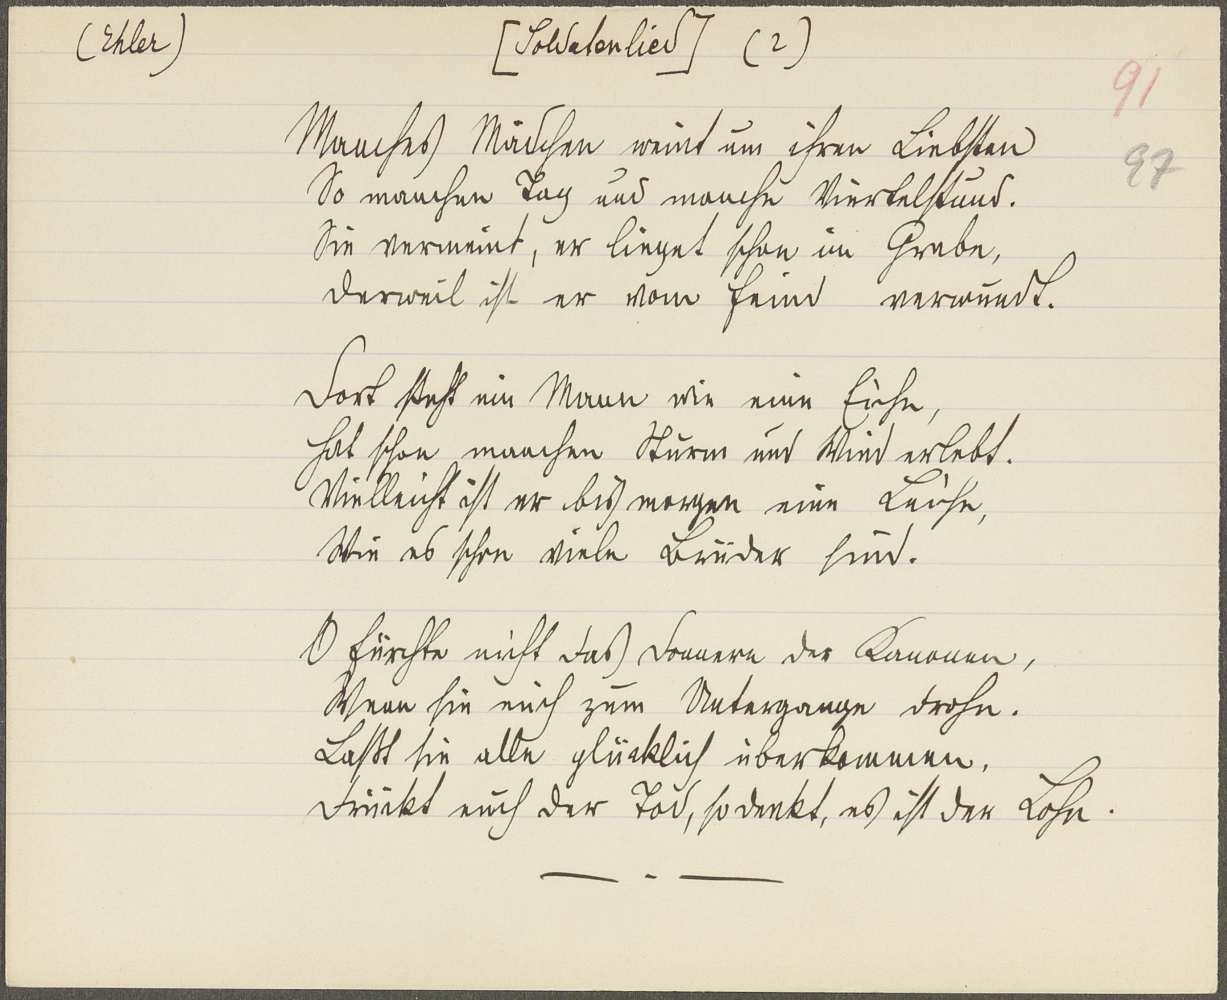 (Ehler) [Soldatenlied] (2)
91
97
Manches Mädchen weint um ihren Liebsten
So manchen Tag und manche Viertelstund.
Sie vermeint, er lieget schon im Grabe,
derweil ist er vom Feind verwundt.
Dort steht ein Mann wie eine Eiche,
hat schon manchen Sturm und Wind erlebt.
Vielleicht ist er bis morgen eine Leiche,
Wie es schon viele Brüder sind.
O fürchte nicht das Donnern der Kanonen,
Wenn sie euch zum Untergange drohn.
Laßt sie alle glücklich überkommen.
Drückt euch der Tod, so denkt, es ist der Lohn.